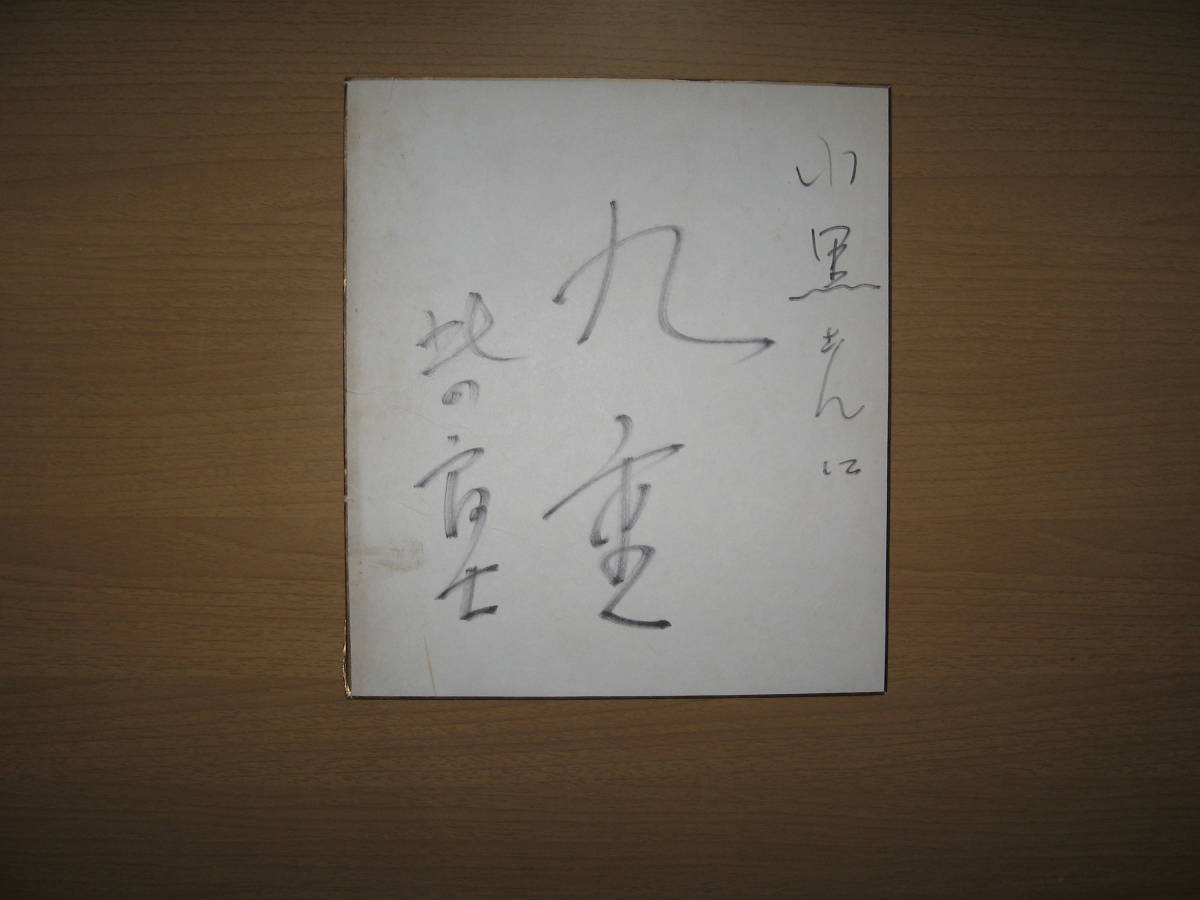 小黒さんに
九重
北の富士